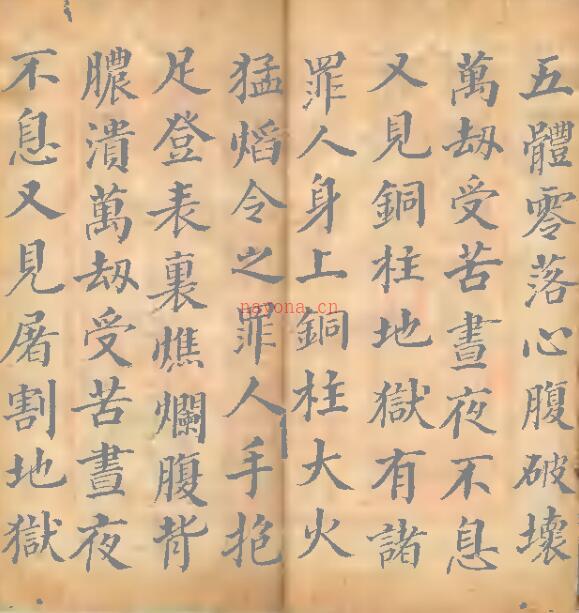 五體零落心腹破壞
萬劫受苦晝夜不息
又見銅柱地獄有諸
罪人身上銅柱大火
猛熖令之罪人手抱
足登表裏燋爛腹背
膿潰萬劫受苦晝夜
不息又見屠割地獄
nayona.cn